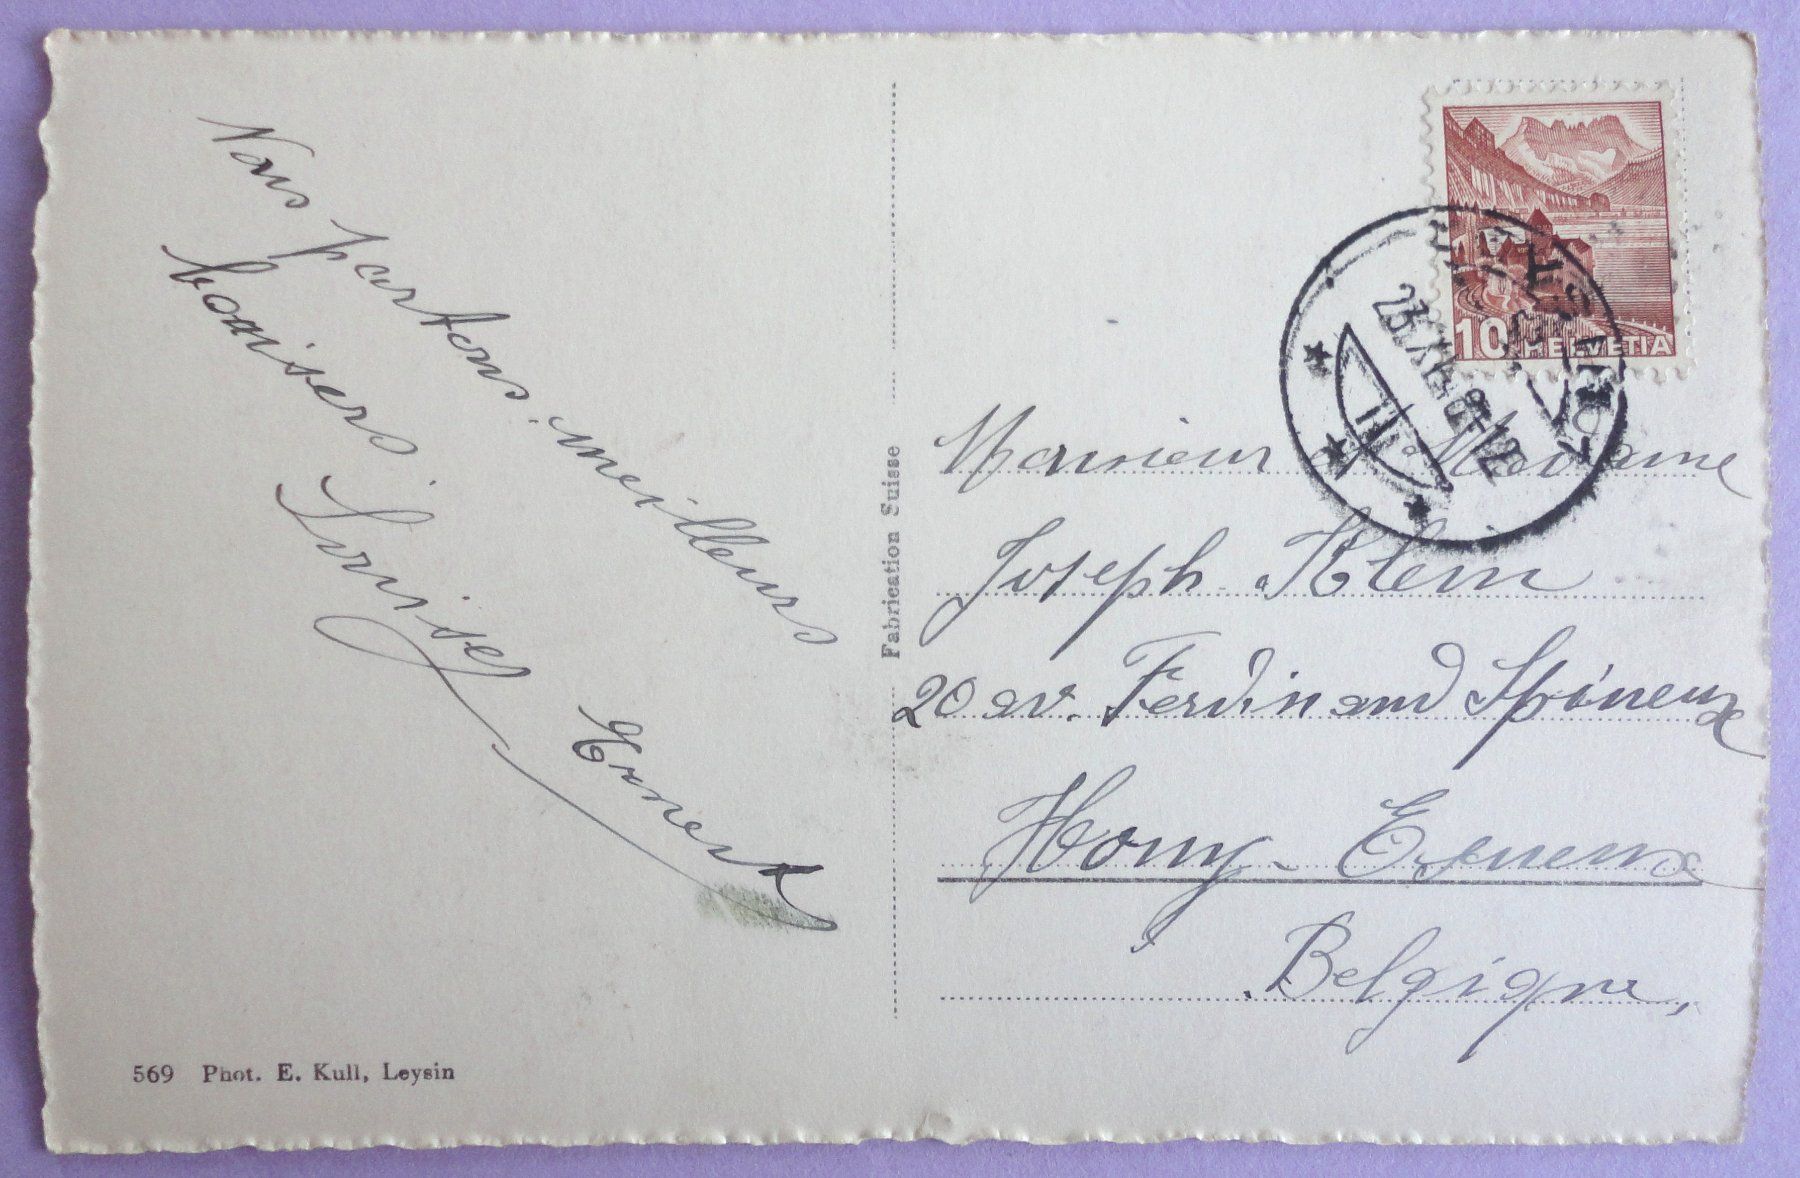 Nous partons. meilleurs
baisers
Louise
Ernest
569 Phot. E. Kull, Leysin
Fabrication Suisse
10 HELVETIA
LEYSIN
23.XII
Monsieur et Madame
Joseph Klein
20 av. Ferdinand Spineux
Hony-Esneux
Belgique,